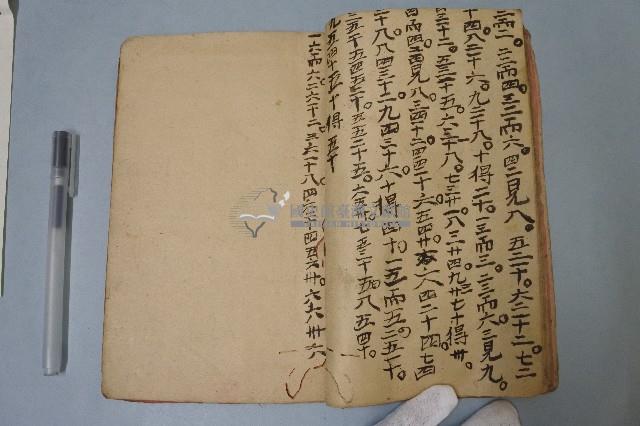 二而二。二二而四。三二而六。四二目見八。五二十。六二十二。七二
十四八二十六。九二十八。十得二十。一三而三。二三而六。三三見九。
三十二。五三十五。六三十八。七三廿一。八三廿四。九三廿七十得卅。
而四。二四目見八。三四十二。四四十六。五四廿。六四二十四。七四
二十八。八四三十二。九四三十六。十得四十。一五而五。二五一十。
三五一十五。四五二十。五五二十五。六五三十。七五三十五。八五四十。
九五四十五。十得五十
一六而六。二六十二。三六一十八。四六二十四。五六卅。六六卅六